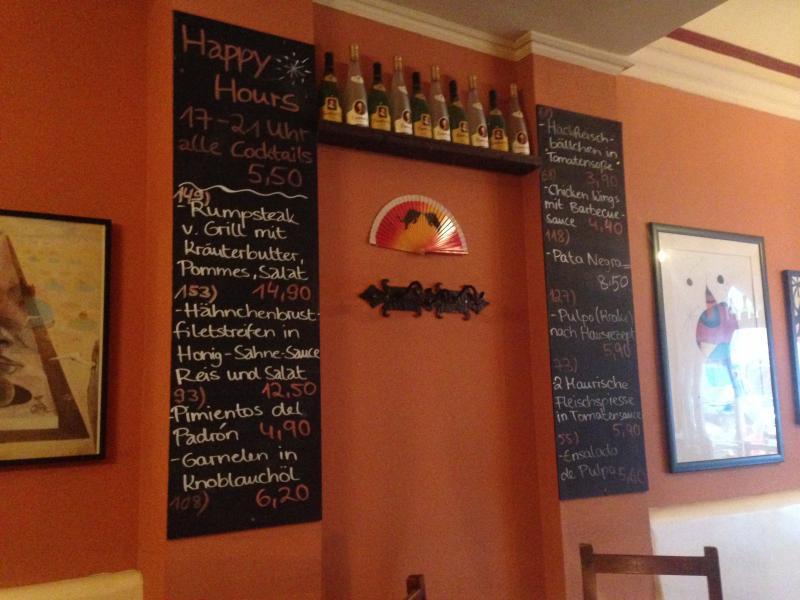 Happy
Hours
17-21 Uhr
alle Cocktails
5,50
149)
-Rumpsteak
v. Grill mit
Kräuterbutter,
Pommes, Salat
153) 14,90
-Hähnchenbrust-
filetstreifen in
Honig-Sahne-Sauce
Reis und Salat
93) 12,50
Pimientos del
Padrón 4,90
-Garnelen in
Knoblauchöl
108) 6,20
-Hackfleisch-
bällchen in
Tomatensoße
3,90
-Chicken Wings
mit Barbecue-
sauce 4,40
118)
-Pata Negra
8,50
127)
-Pulpo (Krake)
nach Hausrezept
5,90
73)
2 Maurische
Fleischspiesse
in Tomatensauce
5,90
55)
-Ensalada
de Pulpo